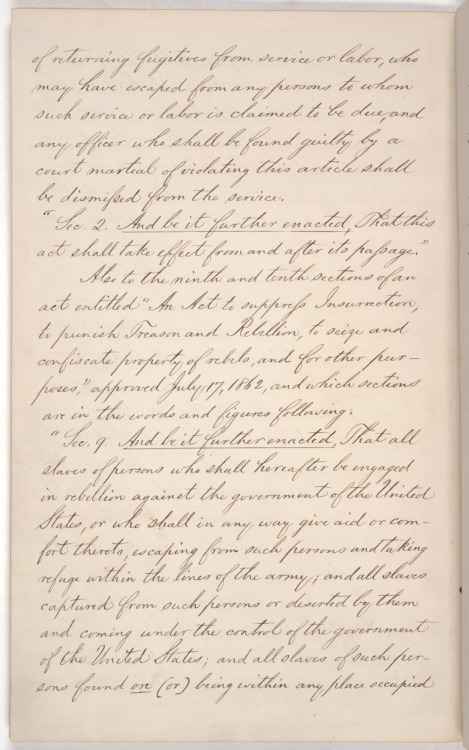 of returning fugitives from service or labor, who
may have escaped from any persons to whom
such service or labor is claimed to be due, and
any officer who shall be found guilty by a
court martial of violating this article shall
be dismissed from the service.
"Sec. 2. And be it further enacted, That this
act shall take effect from and after its passage."
Also to the ninth and tenth sections of an
act entitled "An Act to suppress Insurrection,
to punish Treason and Rebellion, to seize and
confiscate property of rebels, and for other pur-
poses," approved July 17, 1862, and which sections
are in the words and figures following:
"Sec. 9. And be it further enacted, That all
slaves of persons who shall hereafter be engaged
in rebellion against the government of the United
States, or who shall in any way give aid or com-
fort thereto, escaping from such persons and taking
refuge within the lines of the army; and all slaves
captured from such persons or deserted by them
and coming under the control of the government
of the United States; and all slaves of such per-
sons found on (or) being within any place occupied